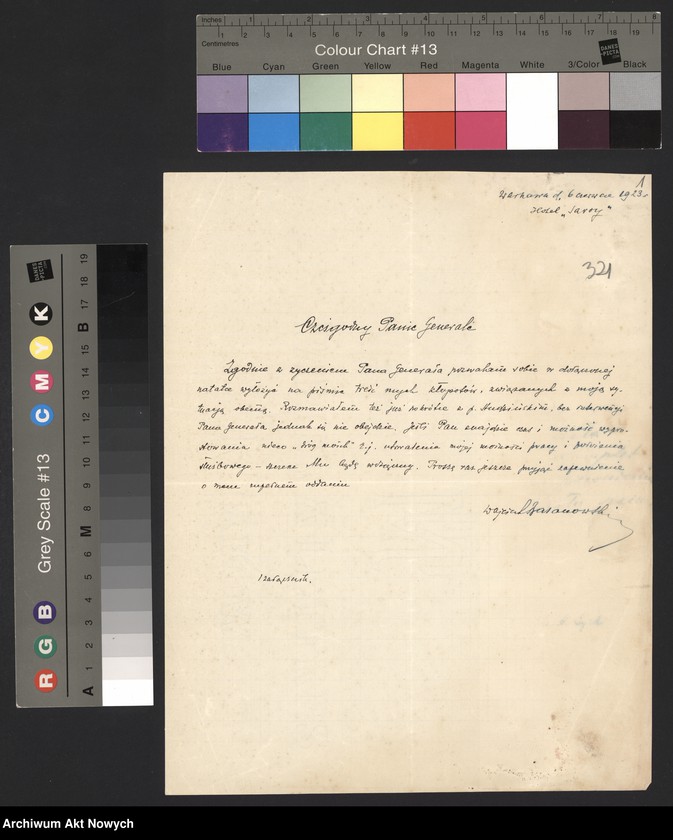 Inches 1 2 3 4 5 6 7 8
Centimetres 1 2 3 4 5 6 7 8 9 10 11 12 13 14 15 16 17 18 19
Colour Chart #13
Blue Cyan Green Yellow Red Magenta White 3/Color Black
1
Warszawa d. 6 czerwca 1923 r.
Hotel „Savoy"
321
Czcigodny Panie Generale
Zgodnie z życzeniem Pana Generała pozwalam sobie w dołączonej
notatce wyłożyć na piśmie treść mych kłopotów, związanych z moją sy-
tuacją obecną. Rozmawiałem też już o p. bez interwencji
Pana Generała jednak się nie obejdzie. Jeśli Pan znajdzie czas i możność wypro-
stowania nieco „dróg moich" t.j. utorowania mojej możności pracy i
służbowego – Mu będę wdzięczny. Proszę raz jeszcze przyjąć zapewnienie
o mem zupełnem oddaniu
1 załącznik.
Grey Scale #13
R G B C M Y K
A 1 2 3 4 5 6 M 8 9 10 11 12 13 14 15 B 17 18 19
Archiwum Akt Nowych